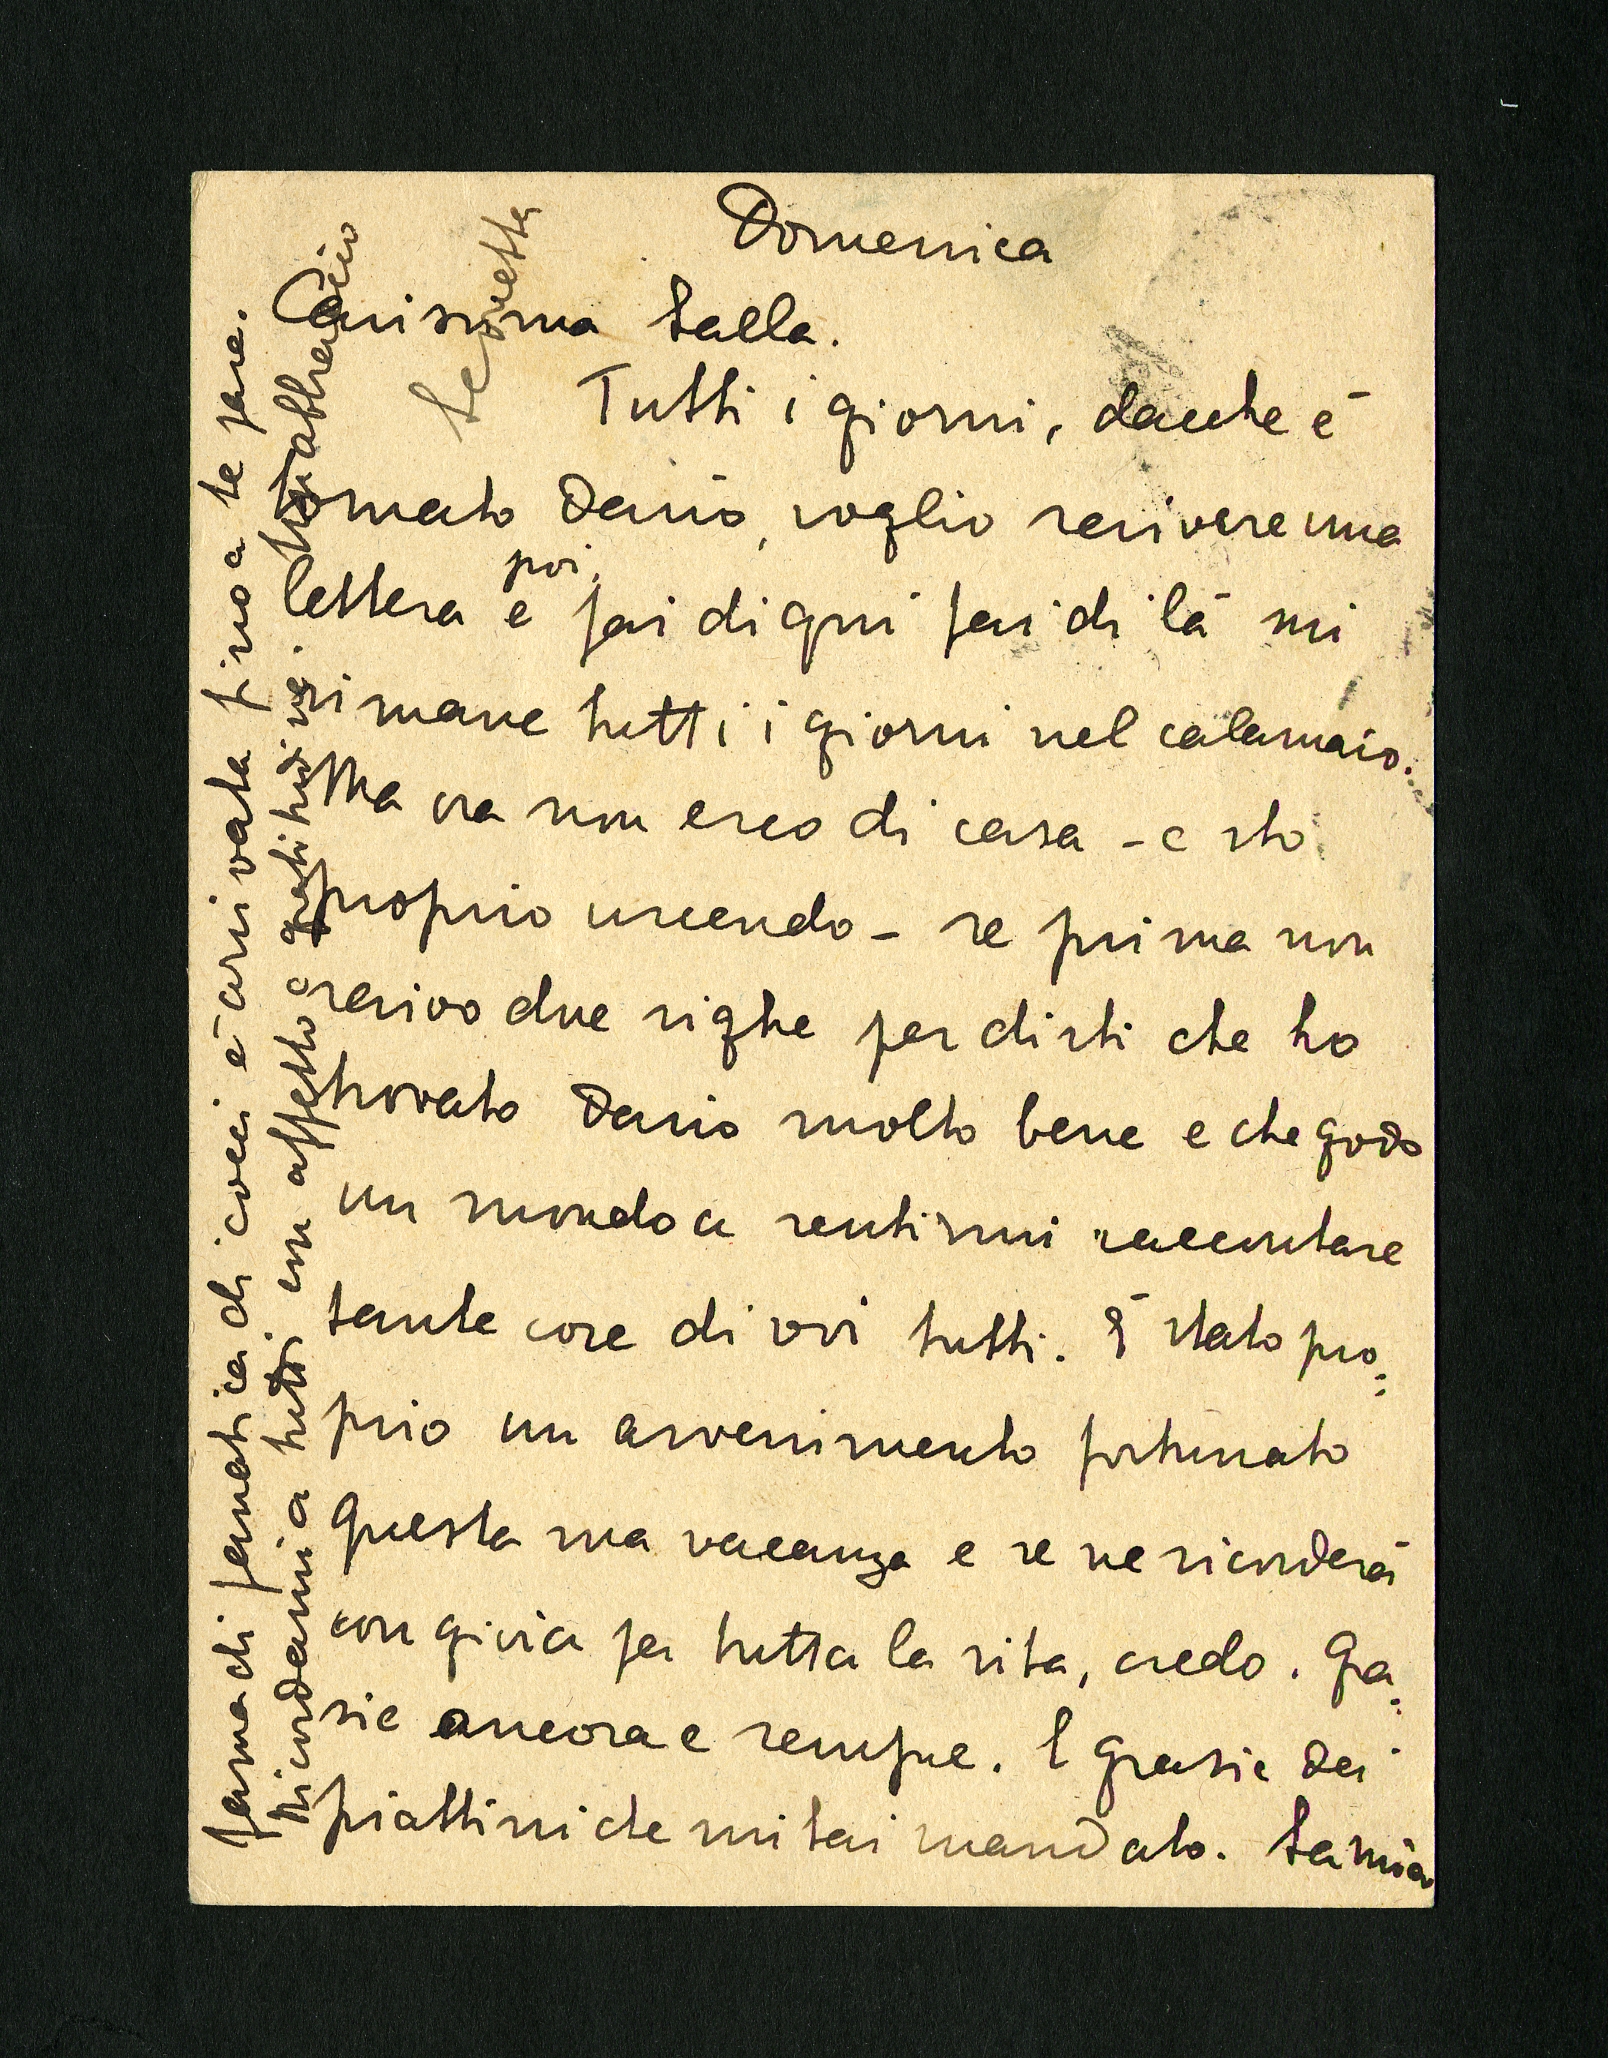 Domenica
Carissima Lalla.
Tutti i giorni, dacche é
tornato Dario, voglio scrivere una
lettera e poi, fai di qui fai di là mi
rimane tutti i giorni nel calamaio.
Ma ora non esco di casa - e sto
proprio uscendo - se prima non
scrivo due righe per dirti che ho
trovato Dario molto bene e che godo
un mondo a sentirmi raccontare
tante cose di voi tutti. É stato pro=
prio un avvenimento fortunato
questa sua vacanza e se ne ricorderà
con gioia per tutta la vita, credo. Gra=
zie ancora e sempre. E grazie dei
piattini che mi hai mandato. La mia
fama di fanatica di cocci é arrivata fino a te pare.
Ricordami a tutti con affetto e gratitudine. Un abbraccio
Leonetta